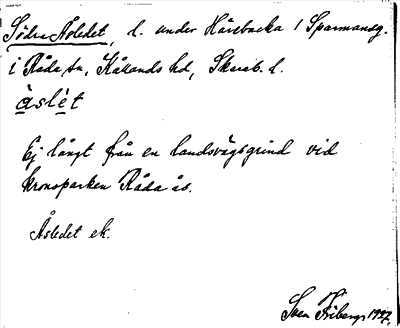 Södra Åsledet, l. under Hårsbacka 1 Sparmansg.
i Råda sn, Kållands hd, Skarab. l.
àslèt
Ej långt från en landsvägsgrind vid
kronoparken Råda ås.
Åsledet ek.
Sven Friberg 1927.